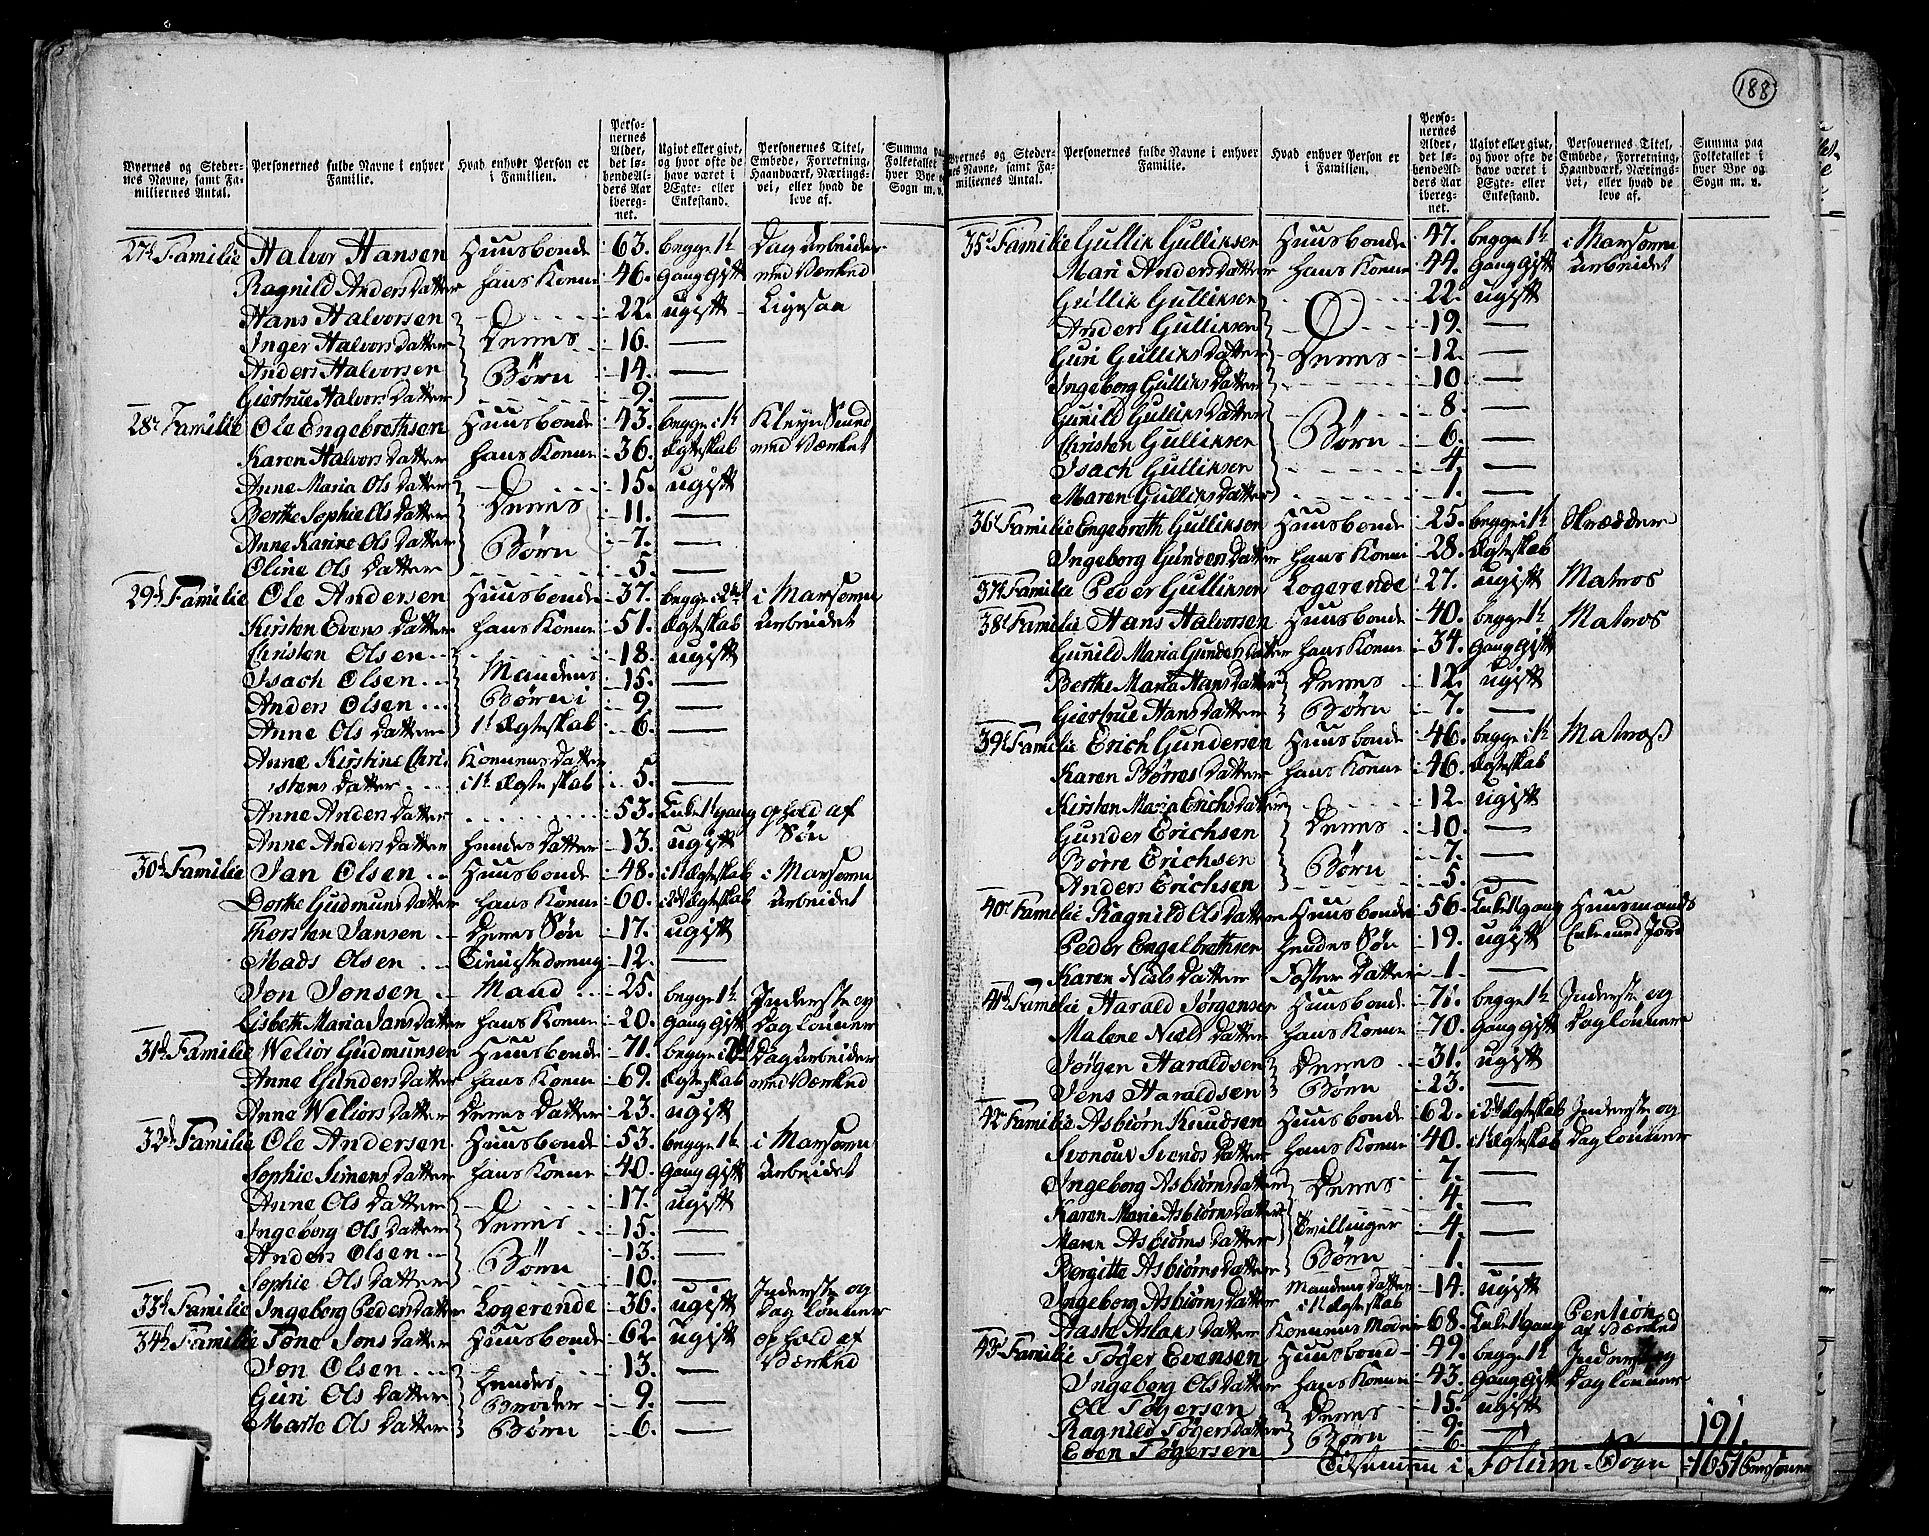 188
Byernes og Stedernes Navne, samt Familiernes Antal. | Personernes fulde Navne i enhver Familie. | Hvad enhver Person er i Familien. | Personernes Alder, det løbende Alders Aar iberegnet. | Ugivt eller givt, og hvor ofte de have været i Ægte- eller Enkestand. | Personernes Titel, Embede, Forretning, Haandværk, Næringsvei, eller hvad de leve af. | Summa paa Folketallet i hver Bye og Sogn m. v.
27de Familie Halvor Hansen Huusbonde 63. begge 1te Dag Arbeider
Ragnild Anders Datter hans Konne 46. Gang Gift med Værked
Hans Halvorsen 22. ugift Ligesaa
Inger Halvors Datter Deres 16. —
Anders Halvorsen Børn 14. —
Giertrue Halvors Datter 9. —
28de Familie Ole Engebrethsen Huusbonde 43. begge i 1te Kleyn Smed
Karen Halvors Datter hans Konne 36. Ægteskab med Værket
Anne Maria Ols Datter 15. ugift
Berthe Sophie Ols Datter Deres 11. —
Anne Karine Ols Datter Børn 7. —
Oline Ols Datter 5. —
29de Familie Ole Andersen Huusbonde 37. begge i 2det i Marsovnen
Kirsten Evens Datter hans Konne 51. Ægteskab Arbeidet
Christen Olsen 18. ugift
Isach Olsen Mandens 15. —
Anders Olsen Børn i 9 —
Anne Ols Datter 1te Ægteskab 6. —
Anne Kirstine Chri- Konnens Datter
stens Datter i 1te Ægteskab 5. —
Anne Anders Datter 53. Enke 1te gang ophold af
Anne Anders Datter hendes Datter 13. ugift Søn
30de Familie Jan Olsen Huusbonde 48. i 1te Ægteskab i Marsovnen
Dorthe Gudmuns Datter hans Konne 60. i 2det Ægteskab Arbeidet
Thorsten Jansen Deres Søn 17. ugift
Mads Olsen 12. —
Jon Jonsen Mand 25. begge 1te Inderste og
Lisbeth Maria Jans Datter hans Konne 20. Gang Gift Dag Lønner
31te Familie Welior Gudmunsen Huusbonde 71. begge i 2det Dag Arbeider
Anne Gunders Datter hans Konne 69. Ægteskab med Værked
Anne Weliors Datter Deres Datter 23. ugift
32de Familie Ole Andersen Huusbonde 53. begge 1te i Marsovnen
Sophie Simens Datter hans Konne 40. Gang Gift Arbeidet
Anne Ols Datter 17. ugift
Ingeborg Ols Datter Deres 15. —
Anders Olsen Børn 13. —
Sophie Ols Datter 10. —
33de Familie Ingeborg Peders Datter Logerende 36. ugift Inderste og Dag Lønner
34de Familie Tone Jons Datter Huusbonde 62 ugift ophold af
Jon Olsen hendes 13. — Værked
Guri Ols Datter Broder 9. —
Marte Ols Datter Børn 6. —
Byernes og Stedernes Navne, samt Familiernes Antal. | Personernes fulde Navne i enhver Familie. | Hvad enhver Person er i Familien. | Personernes Alder, det løbende Alders Aar iberegnet. | Ugivt eller givt, og hvor ofte de have været i Ægte- eller Enkestand. | Personernes Titel, Embede, Forretning, Haandværk, Næringsvei, eller hvad de leve af. | Summa paa Folketallet i hver Bye og Sogn m. v.
35te Familie Gullik Gulliksen Huusbonde 47. begge 1te i Marsovnen
Mari Anders Datter hans Konne 44. Gang Gift Arbeidet
Gullik Gulliksen 22. ugift
Anders Gulliksen 19. —
Guri Gulliks Datter Deres 12. —
Ingeborg Gulliks Datter 10. —
Gunild Gulliks Datter 8. —
Christen Gulliksen Børn 6. —
Isach Gulliksen 4. —
Maren Gulliks Datter 1. —
36te Familie Engebreth Gulliksen Huusbonde 25. begge i 1te Skrædder
Ingeborg Gunders Datter hans Konne 28. Ægteskab
37te Familie Peder Gulliksen Logerende 27. ugift Matros
38te Familie Hans Halvorsen Huusbonde 40. begge 1te Matros
Gunild Maria Gunders Datter hans Konne 34. Gang Gift
Berthe Maria Hans Datter Deres 12. ugift
Giertrue Hans Datter Børn 7. —
39te Familie Erich Gundersen Huusbonde 46. begge i 1te Matros
Karen Børres Datter hans Konne 46. Ægteskab
Kirsten Maria Erichs Datter 12. ugift
Gunder Erichsen Deres 10. —
Børre Erichsen 7. —
Anders Erichsen Børn 5. —
40de Familie Ragnild Ols Datter Huusbonde 56. Enke 1te gang Huusmands
Peder Engelbrethsen hendes Søn 19. ugift Enke med Jord
Karen Niels Datter Foster Datter 1. —
41de Familie Harald Jørgensen Huusbonde 71. begge 1te Inderste og
Malene Niels Datter hans Konne 70. Gang Gift Dag Lønner
Jørgen Haraldsen Deres 31. ugift
Jens Haraldsen Børn 23. —
42de Familie Asbiørn Knudsen Huusbonde 62. i 2det Ægteskab Inderste og
Svends Datter hans Konne 40. i 1te Ægteskab Dag Lønner
Ingeborg Asbiørns Datter Deres 7. —
Karen Marie Asbiørns Datter 4. —
Maren Asbiørns Datter Tvillinger 4. —
Bergitte Asbiørns Datter Børn 1. —
Ingeborg Asbiørns Datter Mandens Datter i 1te Ægteskab 14. ugift
Aaste Aslaks Datter Konnens Moder 68. Enke 1te gang Pention af Værked
43de Familie Tøger Evensen Huusbond 49. begge 1te Inderste og
Ingeborg Ols Datter hans Konne 43. Gang Gift Dag Lønner
Ole Tøgersen Deres 15. ugift
Ragnild Tøgers Datter Børn 9. —
Even Tøgersen 6. — 191.
Tilsammen i Holum Sogn 1651 Personer